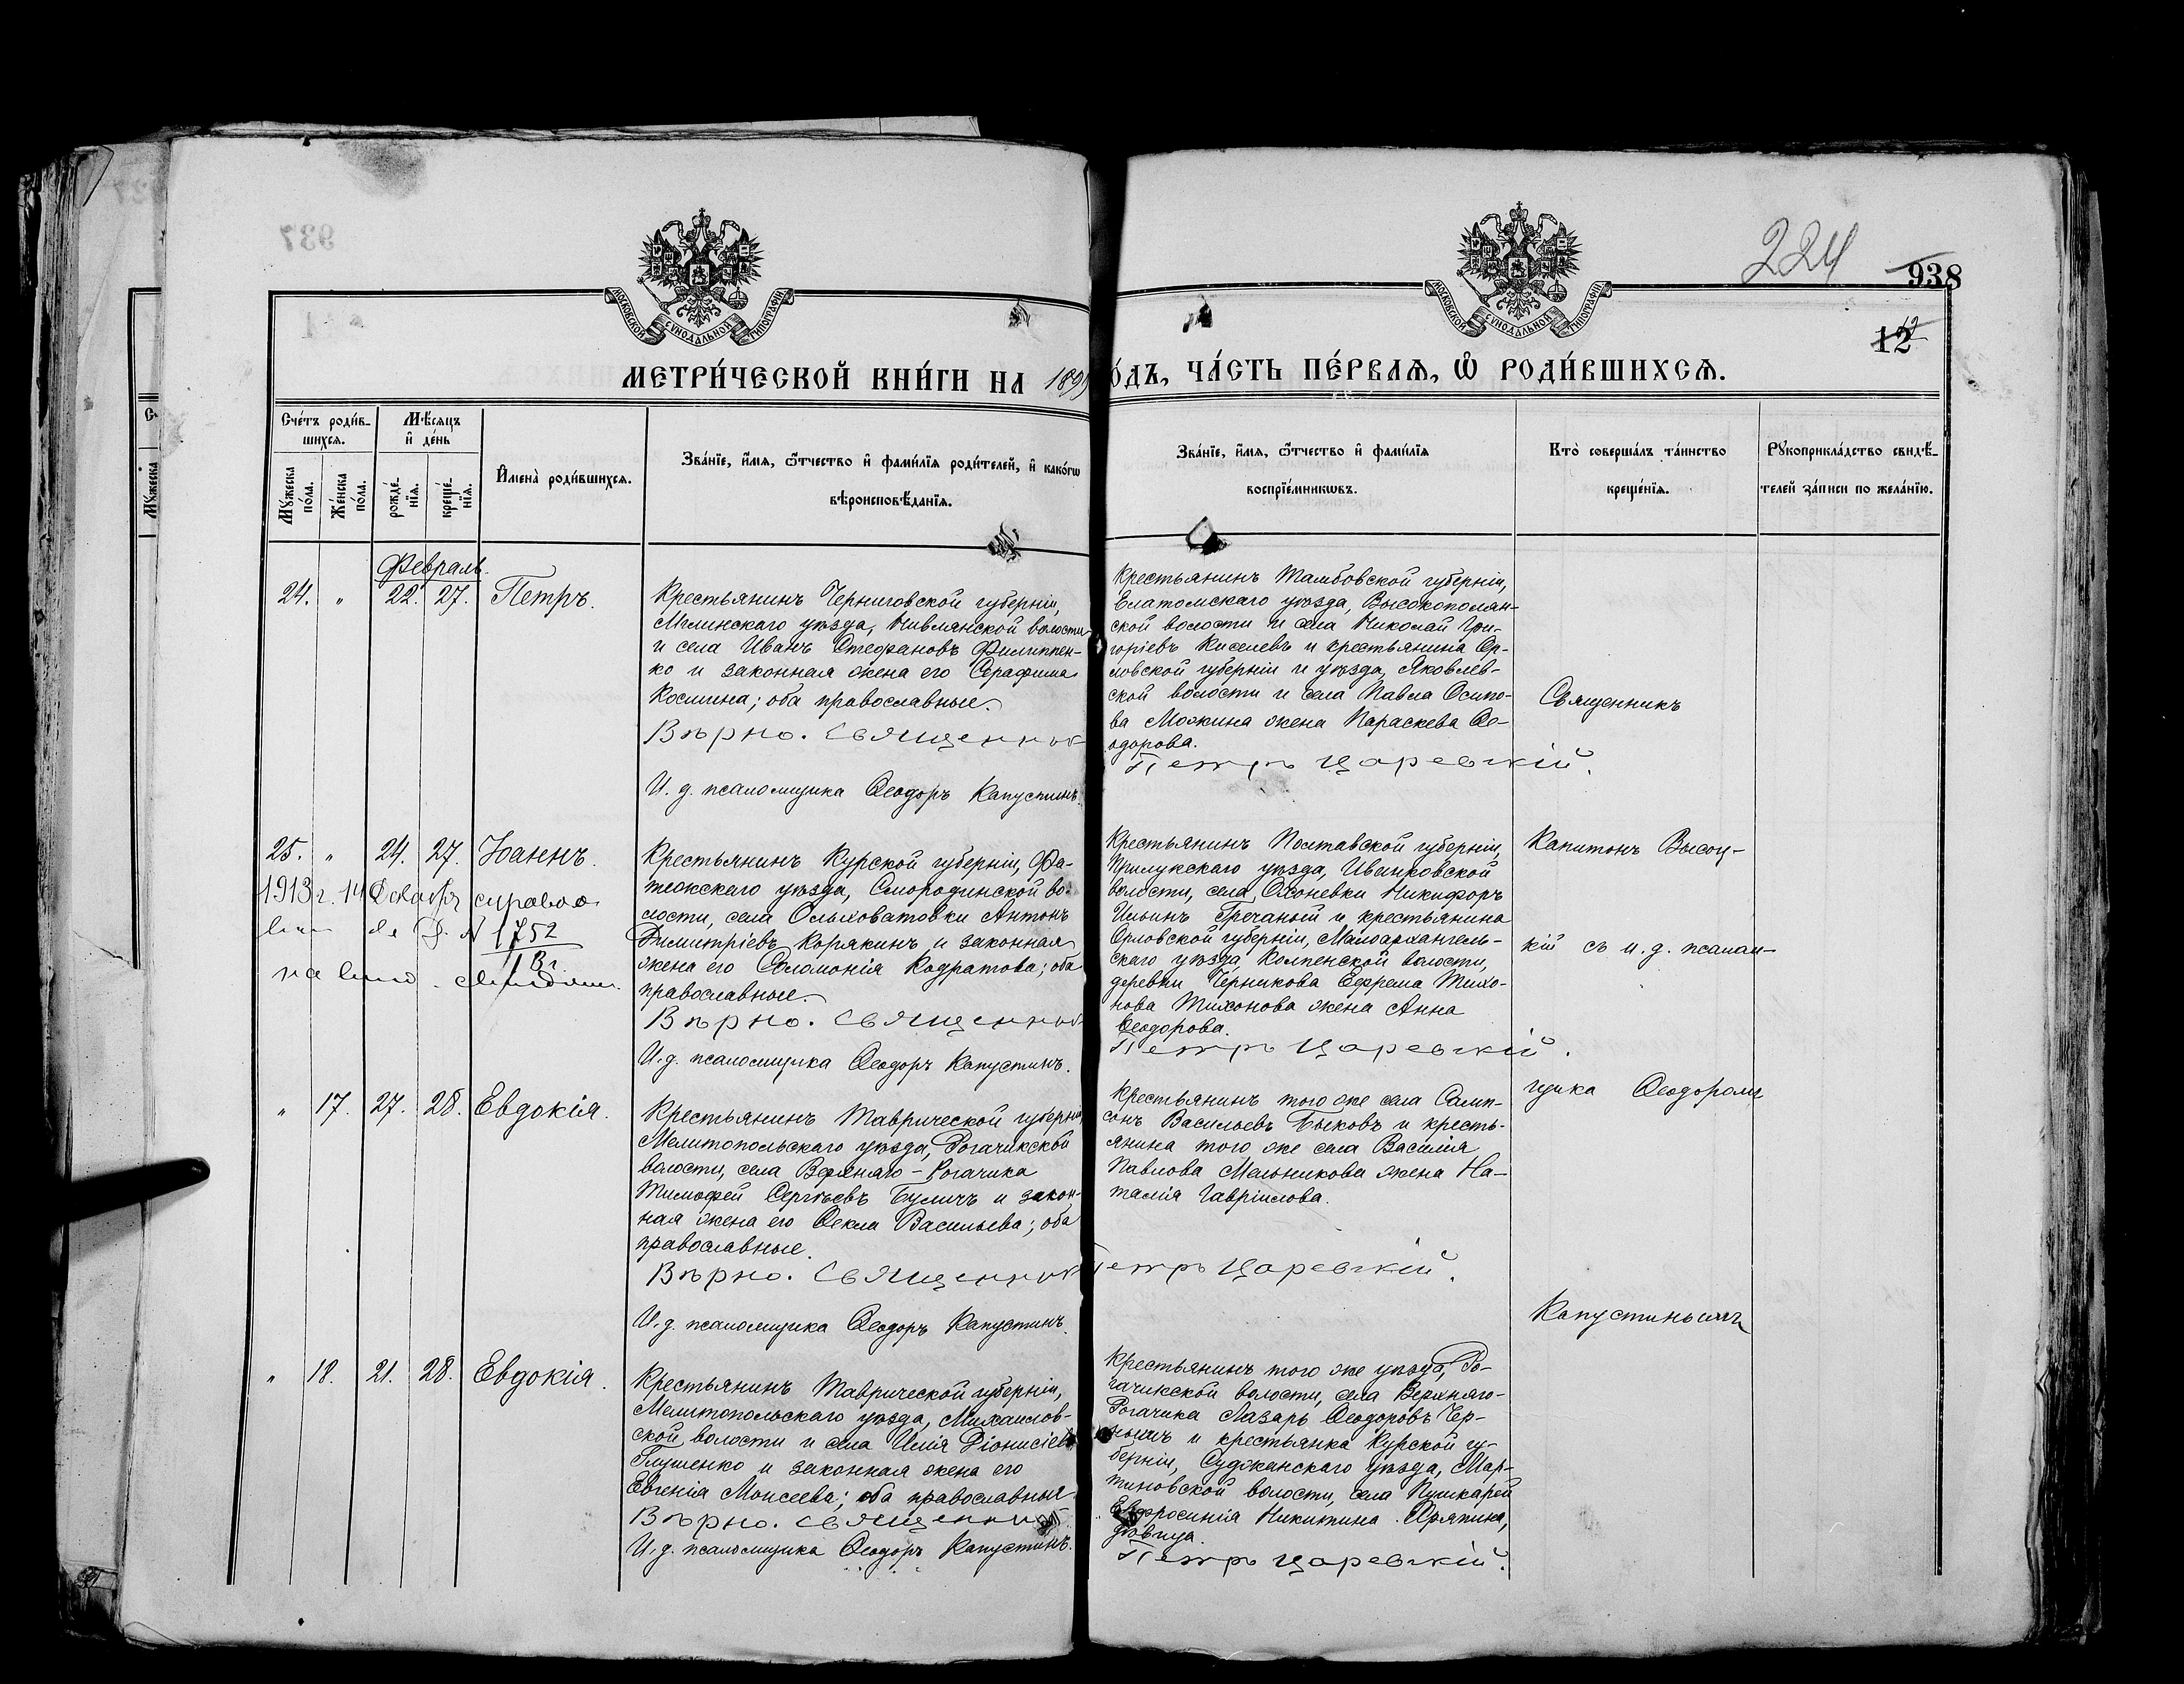 937
224
938
12
МОСКОВСКОЙ СУНОДАЛЬНОЙ ТИПОГРАФІИ
МОСКОВСКОЙ СУНОДАЛЬНОЙ ТИПОГРАФІИ
МЕТРИ́ЧЕСКОЙ КНИ́ГИ НА 189
О́ДЪ, ЧА́СТЬ ПЕ́РВАѦ, Ѽ РОДИ́ВШИХСѦ.
Сче́тъ роди́в-
шихсѧ.
Мѣ́сѧцъ
и҆ де́нь
Мꙋ́жеска
по́ла.
Же́нска
по́ла.
рожде́-
нїѧ.
креще́-
нїѧ.
И҆мена̀ роди́вшихсѧ.
Зва́нїе, и҆́мѧ, ѻ҆́тчество и҆ фами́лїѧ роди́телей, и҆ како́гѡ
вѣроисповѣ́данїѧ.
Зва́нїе, и҆́мѧ, ѻ҆́тчество и҆ фами́лїѧ
воспрїе́мникѡвъ.
Кто̀ соверша́лъ та́инство
креще́нїѧ.
Рꙋкоприкла́дство свидѣ́-
телей за́писи по жела́нїю.
Февраль.
24. " 22. 27. Петръ.
Крестьянинъ Черниговской губерніи,
Мглинскаго уѣзда, Нивлянской волости
и села Иванъ Стефановъ Филиппен-
ко и законная жена его Серафима
Космина; оба православные.
Вѣрно. Священник
И. д. псаломщика Ѳеодоръ Капустинъ.
Крестьянинъ Тамбовской губерніи,
Елатомскаго уѣзда, Высокополян-
ской волости и села Николай Гри-
горіевъ Киселевъ и крестьянина Ор-
ловской губерніи и уѣзда, Яковлев-
ской волости и села Павла Осипо-
ва Можина жена Параскева Ѳе-
одорова.
Петръ Царевскій.
Священникъ
25. " 24. 27. Іоаннъ.
1913 г. 14 Декабр
1752
13 г.
Крестьянинъ Курской губерніи, Фа-
тежскаго уѣзда, Смородинской во-
лости, села Ольховатовки Антонъ
Димитріевъ Корякинъ и законная
жена его Соломонія Кодратова; оба
православные.
Вѣрно. Священник
И. д. псаломщика Ѳеодоръ Капустинъ.
Крестьянинъ Полтавской губерніи,
Прилукскаго уѣзда, Иваньковской
волости, села Никифоръ
Ильинъ Гречаный и крестьянина
Орловской губерніи, Малоархангель-
скаго уѣзда, Колпенской волости,
деревни Черникова Ефрема Тихо-
нова Тихонова жена Анна
Ѳеодорова.
Петръ Царевскій.
Капитонъ Высоц-
кій съ и. д. псалом-
щика Ѳеодоромъ
" 17. 27. 28. Евдокія.
Крестьянинъ Таврической губерніи
Мелитопольскаго уѣзда, Рогачикской
волости, села Верхняго-Рогачика
Тимофей Сергѣевъ Буличъ и закон-
ная жена его Ѳекла Васильева; оба
православные.
Вѣрно. Священник
И. д. псаломщика Ѳеодоръ Капустинъ.
Крестьянинъ того же села Самп-
сонъ Васильевъ Быковъ и кресть-
янина того же села Василія
Павлова Мельникова жена На-
талія Гавріилова.
Петръ Царевскій.
Капустинымъ
" 18. 21. 28. Евдокія.
Крестьянинъ Таврической губерніи,
Мелитопольскаго уѣзда, Михайлов-
ской волости и села Илія Діонисіевъ
Глушенко и законная жена его
Евгенія Моисеева; оба православные.
Вѣрно. Священник
И. д. псаломщика Ѳеодоръ Капустинъ.
Крестьянинъ того же уѣзда, Ро-
гачикской волости, села Верхняго-
Рогачика Лазарь Ѳеодоровъ Чер-
нышъ и крестьянка Курской гу-
берніи, Суджанскаго уѣзда, Мар-
тиновской волости, села Пушкарей
Евфросинія Никитина
дѣвица.
Петръ Царевскій.